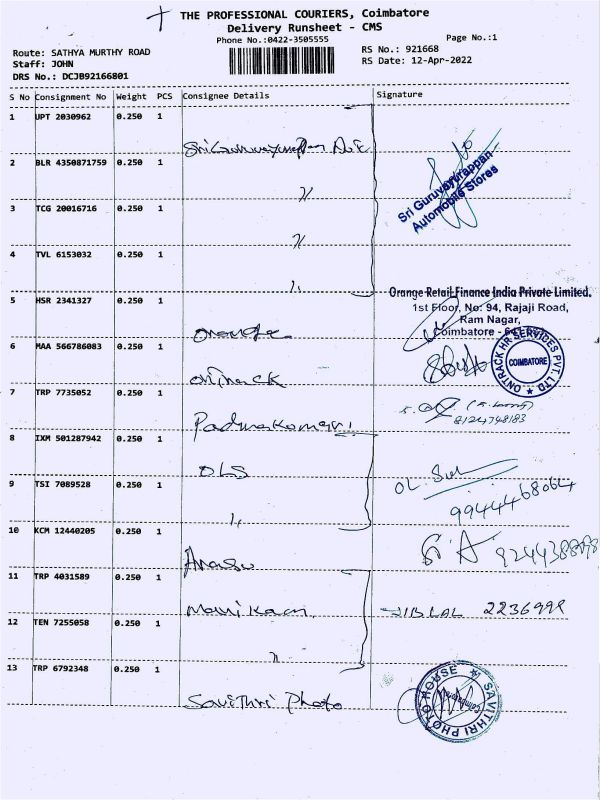 THE PROFESSIONAL COURIERS, Coimbatore
Delivery Runsheet - CMS
Phone No.:0422-3505555
Page No.:1
Route: SATHYA MURTHY ROAD
RS No.: 921668
Staff: JOHN
RS Date: 12-Apr-2022
DRS No.: DCJB92166801
S No Consignment No Weight PCS Consignee Details Signature
1 UPT 2030962 0.250 1
2 BLR 4350871759 0.250 1
Sri Guruvayurappan
Automobile Stores
3 TCG 20016716 0.250 1
4 TVL 6153032 0.250 1
Orange Retail Finance India Private Limited.
1st Floor, No: 94, Rajaji Road,
Ram Nagar,
Coimbatore -
5 HSR 2341327 0.250 1
Orange
6 MAA 566786083 0.250 1
ONTRACK HR SERVICES PVT. LTD
COIMBATORE
Ontrack
7 TRP 7735052 0.250 1
8124748183
Padmakumari
8 IXM 501287942 0.250 1
OLS
9 TSI 7089528 0.250 1
OL
10 KCM 12440205 0.250 1
11 TRP 4031589 0.250 1
JIBLAL 2236999
12 TEN 7255058 0.250 1
13 TRP 6792348 0.250 1
SAVITHRI PHOTO HOUSE
Savithri Photo